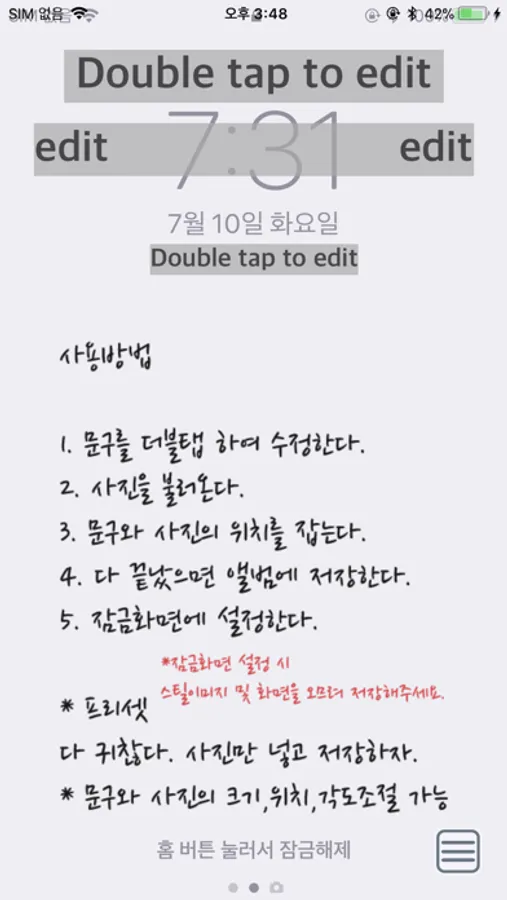 SIM 없음 오후 3:48 42%
Double tap to edit
edit 7:31 edit
7월 10일 화요일
Double tap to edit
사용방법
1. 문구를 더블탭 하여 수정한다.
2. 사진을 불러온다.
3. 문구와 사진의 위치를 잡는다.
4. 다 끝났으면 앨범에 저장한다.
5. 잠금화면에 설정한다.
*잠금화면 설정 시
스틸이미지 및 화면을 오므려 저장해주세요.
* 프리셋
다 귀찮다. 사진만 넣고 저장하자.
* 문구와 사진의 크기,위치,각도조절 가능
홈 버튼 눌러서 잠금해제